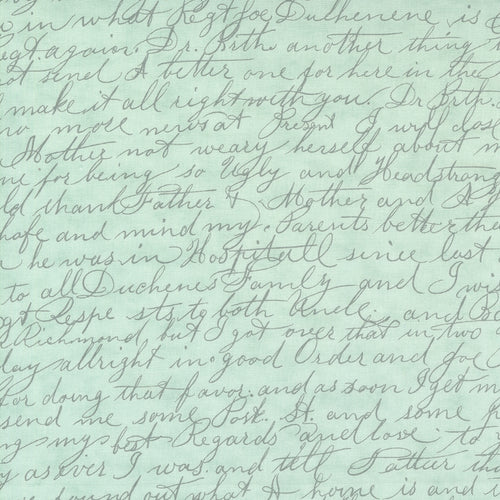 in what Regt Joe Duchenene is
Regt. again. Dr. Brth. another thing
not send A better one for here in the
make it all right with you. Dr Brth.
no more news at Present I will close
Mother not weary herself about m
me for being so Ugly and Headstrong
ld thank Father & Mother and A
hafe and mind my Parents better tha
he was in Hospitall since last
to all Duchenes Family and I wis
gt Respe sts to both Uncle. and
Richmond but I got over that in two
day allright in good Order and Joe
for doing that favor. and as soon I get m
send me some Post. St. and some
ng my best Regards and love to
y as ever I was. and tell Father the
found out what A home is and